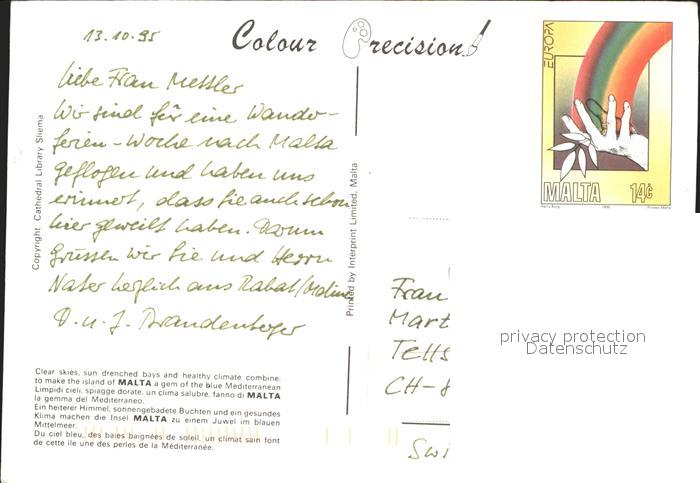 13.10.95
Colour Precision
Liebe Frau Mettler
Wir sind für eine Wander-
ferien-Woche nach Malta
geflogen und haben uns
erinnert, dass Sie auch schon
hier geweilt haben. Darum
grüssen wir Sie und Herrn
Nater herzlich aus Rabat/Mdina
D. u. J. Brandenberger
Copyright: Cathedral Library Sliema.
Printed by Interprint Limited, Malta
EUROPA
MALTA 14c
Frau
Mart
Tells
CH-8
Swi
privacy protection
Datenschutz
Clear skies, sun drenched bays and healthy climate combine,
to make the island of MALTA a gem of the blue Mediterranean
Limpidi cieli, spiagge dorate, un clima salubre, fanno di MALTA
la gemma del Mediterraneo.
Ein heiterer Himmel, sonnengebadete Buchten und ein gesundes
Klima machen die Insel MALTA zu einem Juwel im blauen
Mittelmeer.
Du ciel bleu, des baies baignées de soleil, un climat sain font
de cette ile une des perles de la Méditerranée.